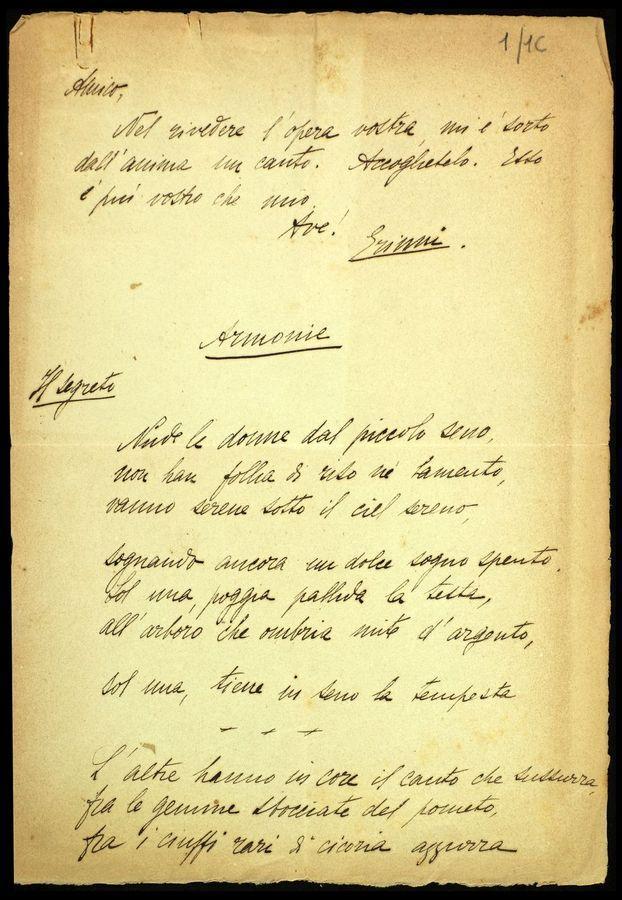 1/1C
Amico,
Nel rivedere l'opera vostra, mi è sorto
dall'anima un canto. Accoghetelo. Esso
è più vostro che mio.
Ave!
Erinni.
Armonie
Il segreto
Nude le donne dal piccolo seno,
non han follia di riso nè lamento,
vanno serene sotto il ciel sereno,
sognando ancora un dolce sogno spento.
Sol una, poggia pallida la testa,
all'arboro che ombria mite d'argento,
sol una, tiene in seno la tempesta
- - -
L'altre hanno in core il canto che sussurra,
fra le gemme sbocciate del pometo,
fra i ciuffi rari di cicoria azzurra